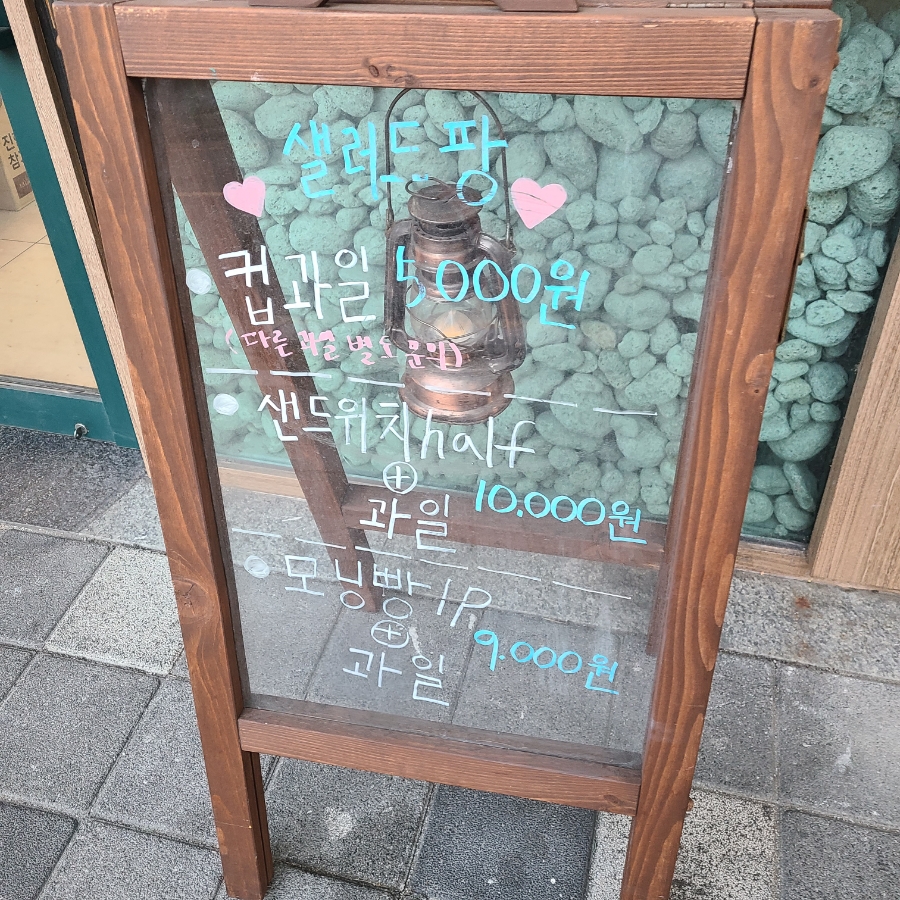 샐러드팡
컵과일 5000원
(다른 과일 별도 문의)
샌드위치 half
+
과일 10.000원
모닝빵 1P
+
과일 9.000원
진
참